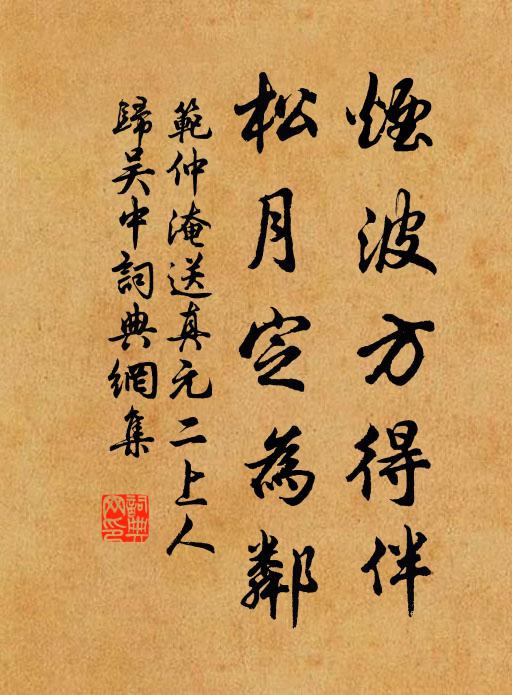 煙波方得伴
松月定為鄰
範仲淹送真元二上人
歸吳中詞典網集
詞典網印